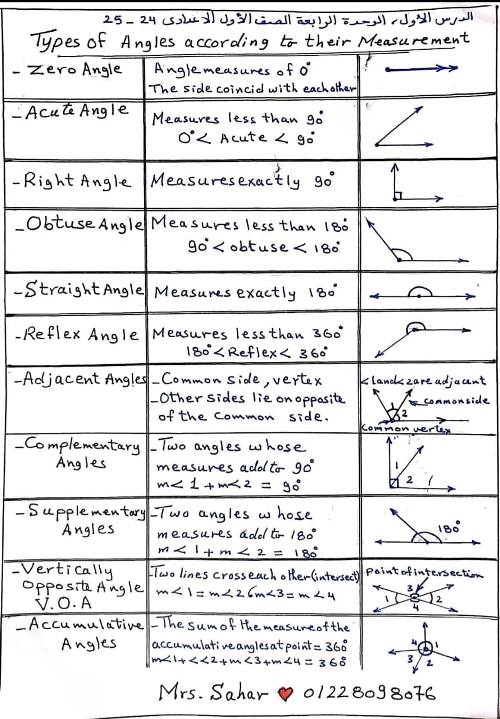 الدرس الأول، الوحدة الرابعة الصف الأول الاعدادى 24 - 25
Types of Angles according to their Measurement
- Zero Angle
Angle measures of 0°
The side coincid with each other
- Acute Angle
Measures less than 90°
0° < Acute < 90°
- Right Angle
Measures exactly 90°
- Obtuse Angle
Measures less than 180°
90° < obtuse < 180°
- Straight Angle
Measures exactly 180°
- Reflex Angle
Measures less than 360°
180° < Reflex < 360°
- Adjacent Angles
- Common side, vertex
- Other sides lie on opposite
of the common side.
<1 and <2 are adjacent
common side
1 2
common vertex
- Complementary
Angles
- Two angles whose
measures add to 90°
m<1 + m<2 = 90°
1
2
- Supplementary
Angles
- Two angles whose
measures add to 180°
m<1 + m<2 = 180°
180°
- Vertically
Opposite Angle
V.O.A
- Two lines cross each other (intersect)
m<1 = m<2 6 m<3 = m<4
point of intersection
3
1 2
4
- Accumulative
Angles
- The sum of the measure of the
accumulative angles at point = 360°
m<1 + <<2 + m<3 + m<4 = 360°
4 1
3 2
Mrs. Sahar ♥ 01228098076